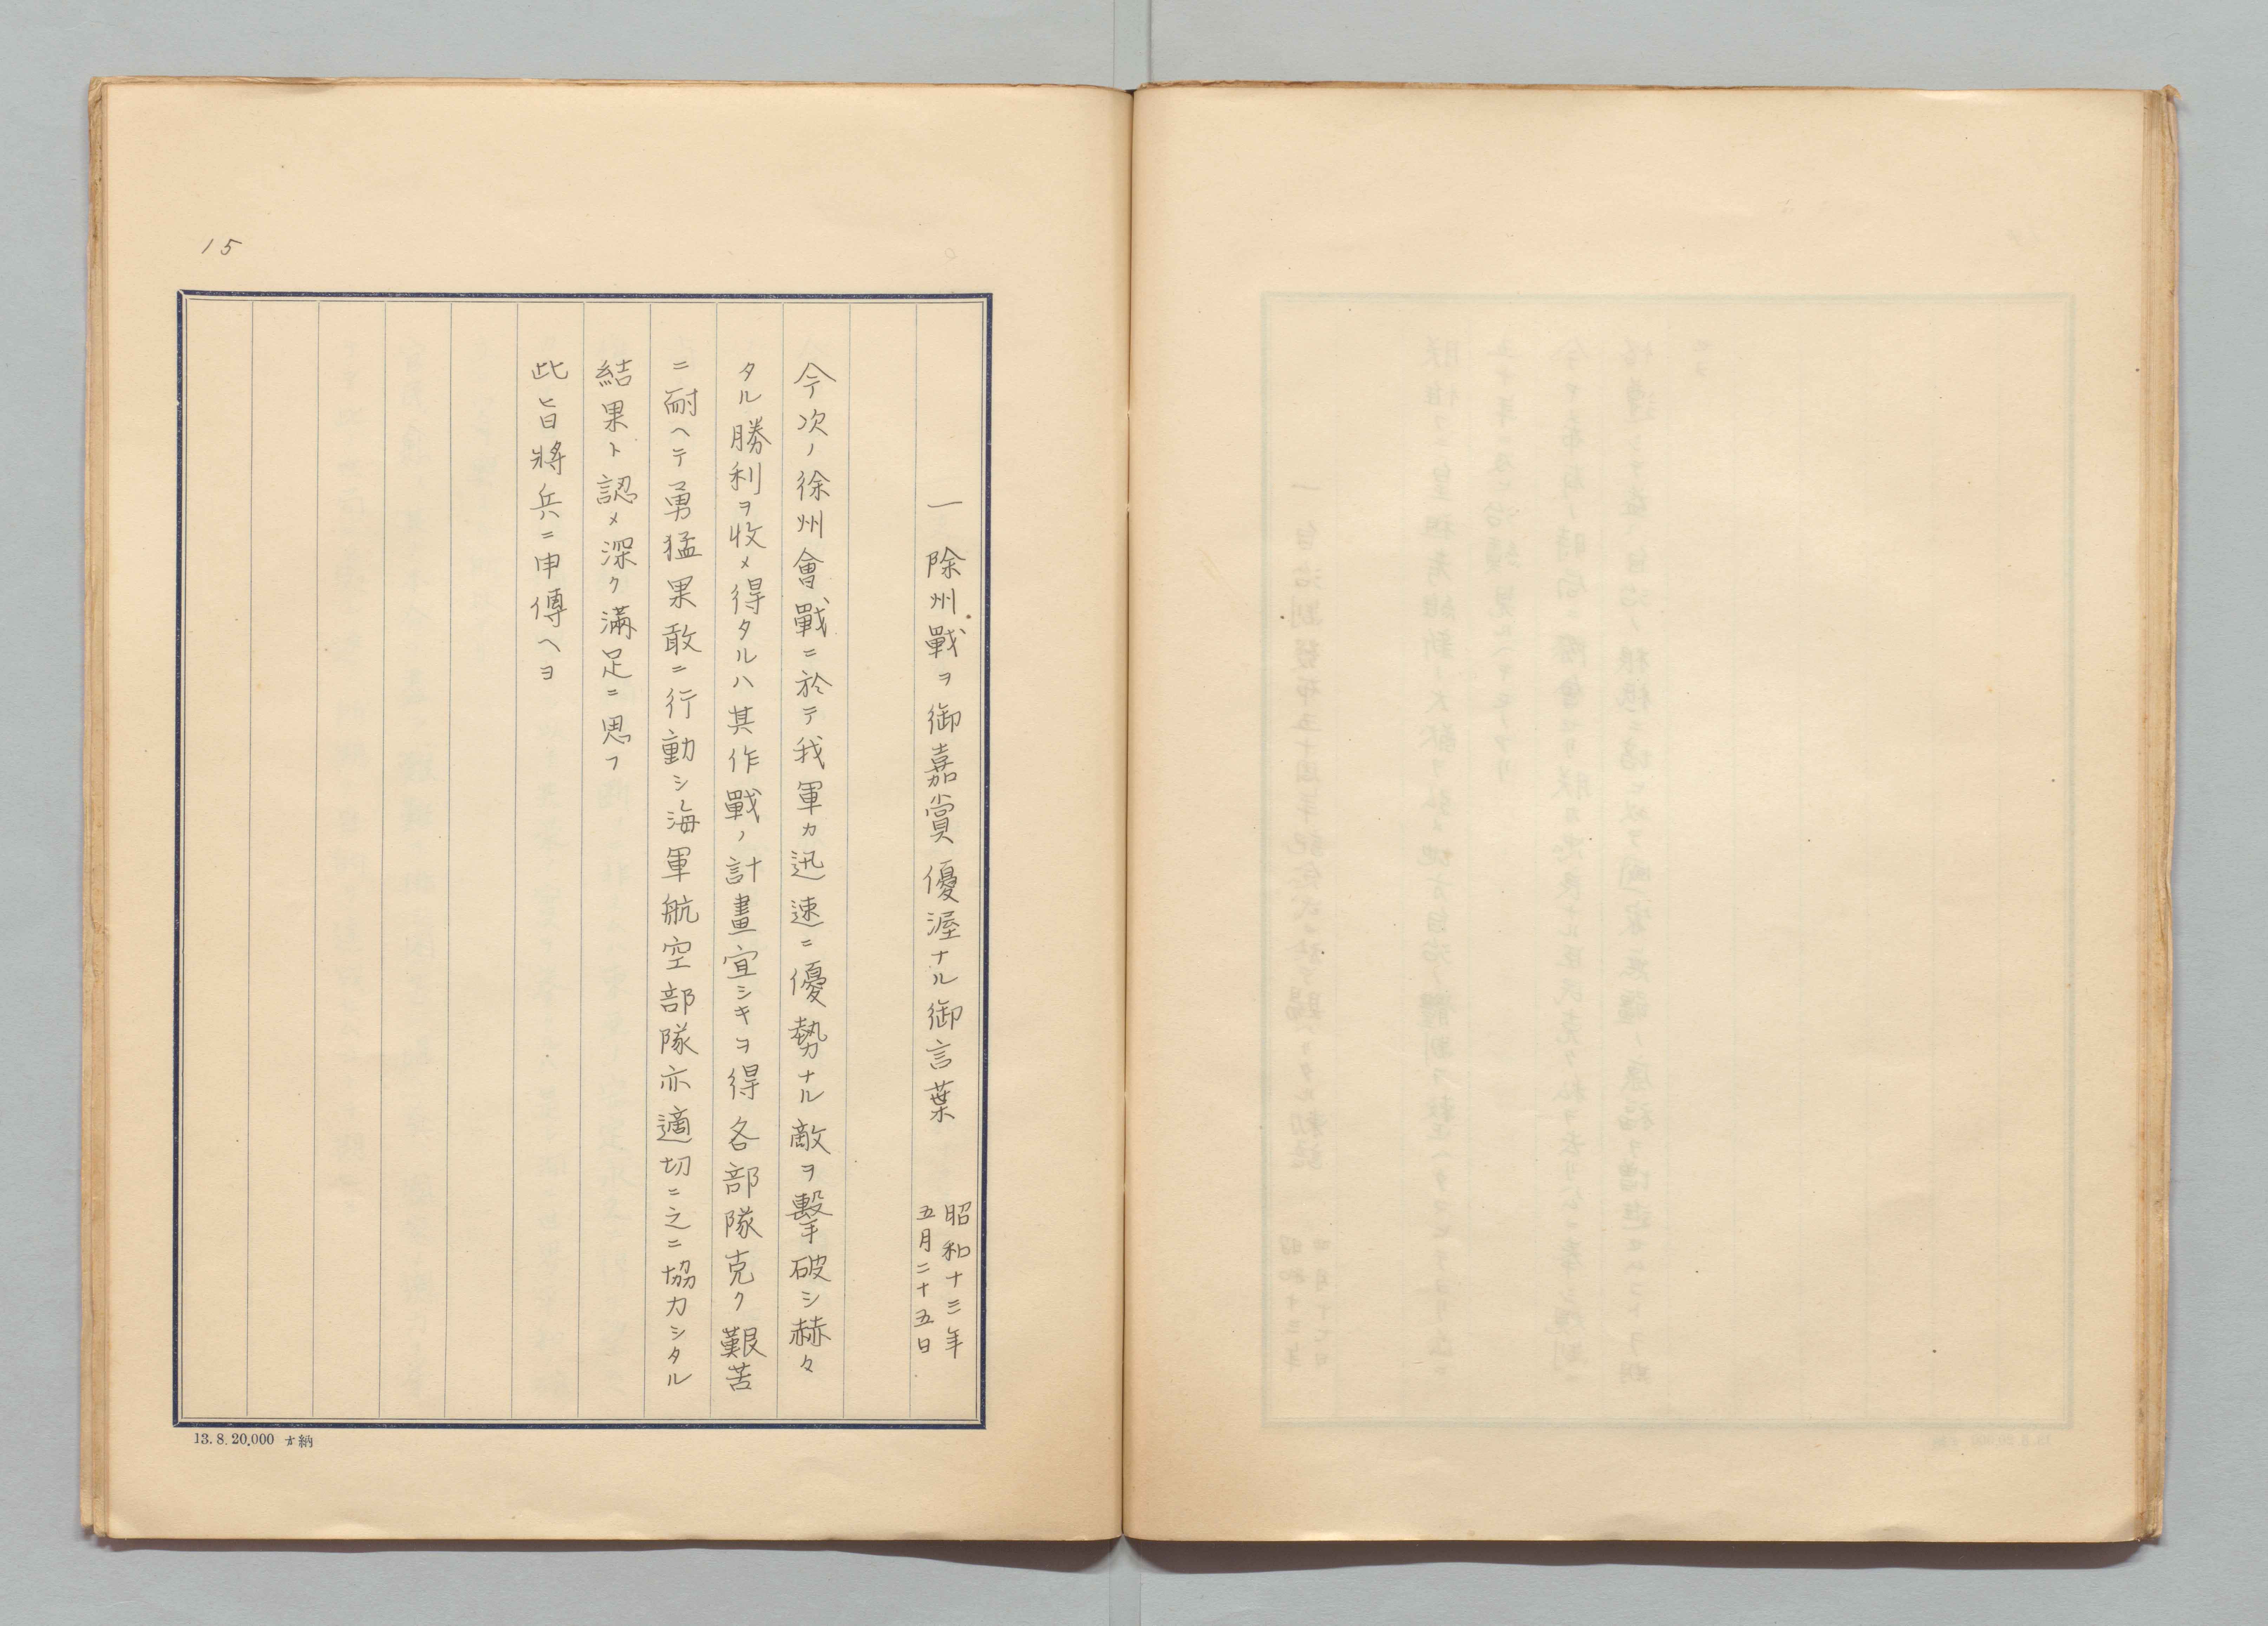 15
一 除州戰ヲ御嘉賞優渥ナル御言葉
昭和十三年
五月二十五日
今次ノ徐州會戰ニ於テ我軍カ迅速ニ優勢ナル敵ヲ擊破シ赫々
タル勝利ヲ收メ得タルハ其作戰ノ計畫宜シキヲ得各部隊克ク艱苦
ニ耐ヘテ勇猛果敢ニ行動シ海軍航空部隊亦適切ニ之ニ協力シタル
結果ト認メ深ク滿足ニ思フ
此旨將兵ニ申傳ヘヨ
13. 8. 20,000 納